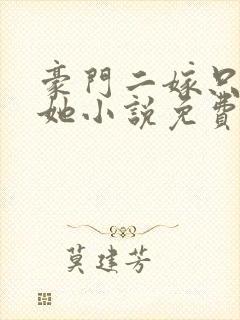 豪門二嫁只
她小說免費
莫建芳